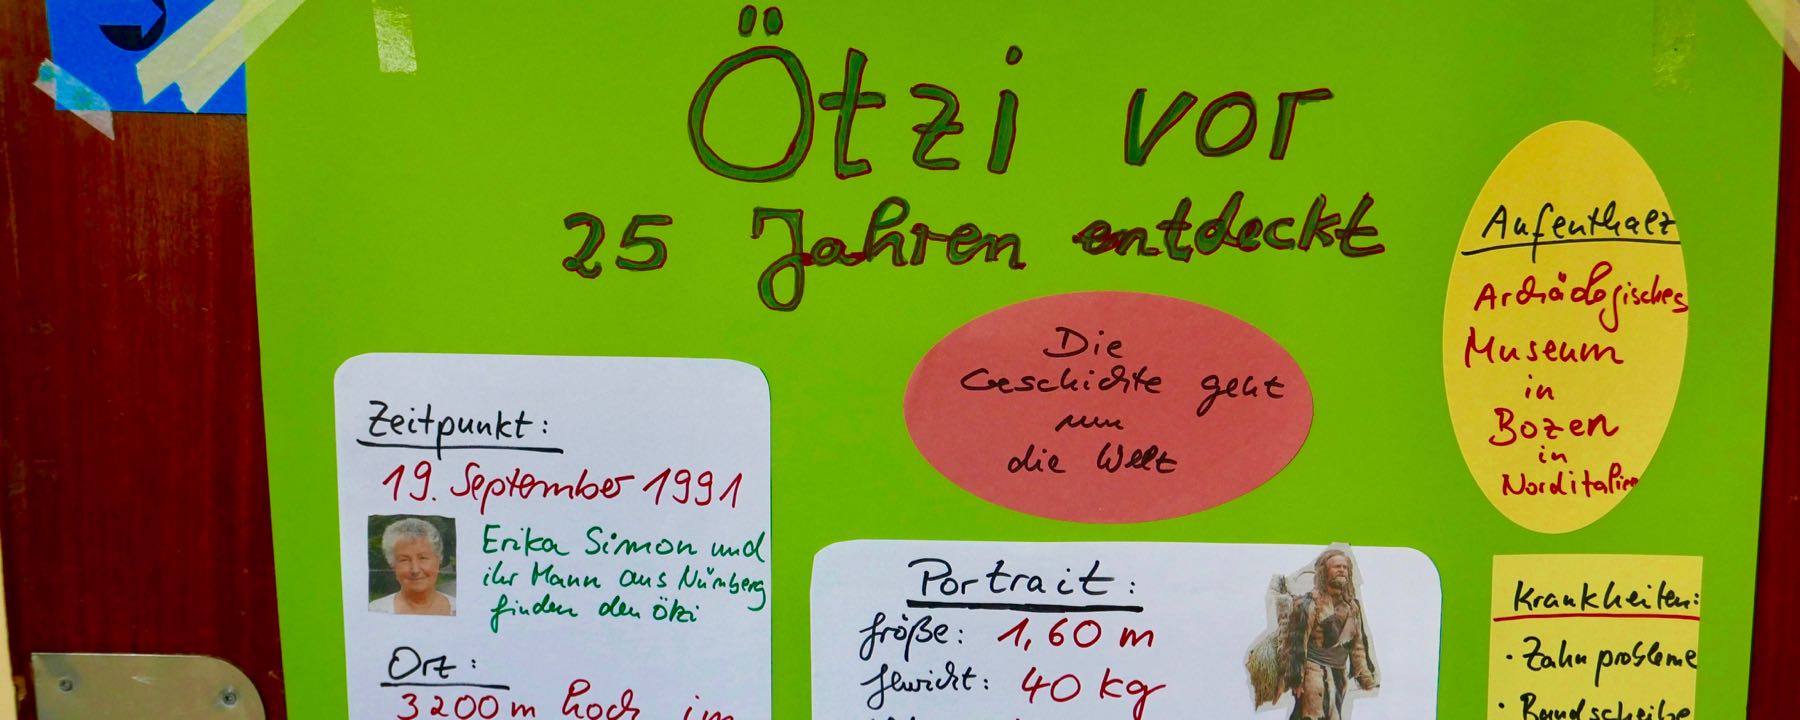 Ötzi vor
25 Jahren entdeckt
Die
Geschichte geht
um
die Welt
Aufenthalt
Archäologisches
Museum
in
Bozen
in
Norditalien
Zeitpunkt:
19. September 1991
Erika Simon und
ihr Mann aus Nürnberg
finden den Ötzi
Ort:
3200m hoch im
Portrait:
Größe: 1,60 m
Gewicht: 40 kg
Krankheiten:
· Zahnprobleme
· Bandscheibe